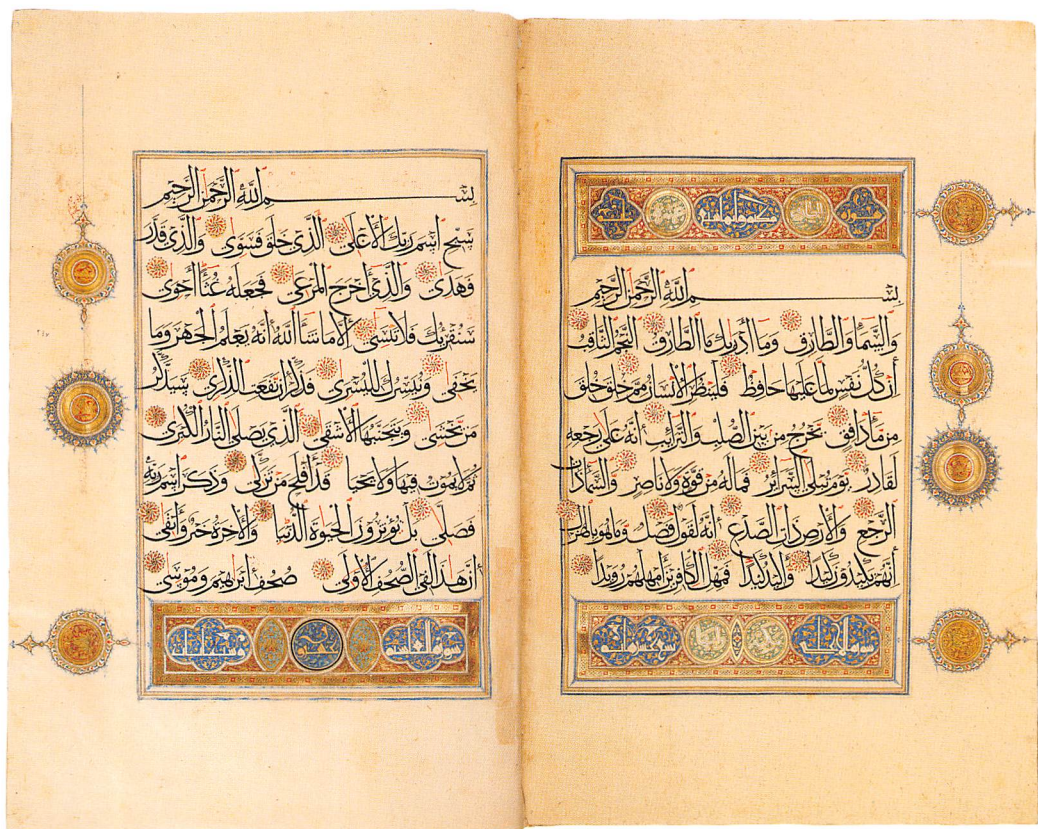 بِسْمِ اللَّهِ الرَّحْمٰنِ الرَّحِيمِ
وَالسَّمَاءِ وَالطَّارِقِ وَمَا أَدْرٰيكَ مَا الطَّارِقُ النَّجْمُ الثَّاقِبُ
إِنْ كُلُّ نَفْسٍ لَمَّا عَلَيْهَا حَافِظٌ فَلْيَنْظُرِ الْإِنْسَانُ مِمَّ خُلِقَ خُلِقَ
مِنْ مَاءٍ دَافِقٍ يَخْرُجُ مِنْ بَيْنِ الصُّلْبِ وَالتَّرَائِبِ إِنَّهُ عَلَى رَجْعِهِ
لَقَادِرٌ يَوْمَ تُبْلَى السَّرَائِرُ فَمَا لَهُ مِنْ قُوَّةٍ وَلَا نَاصِرٍ وَالسَّمَاءِ ذَاتِ
الرَّجْعِ وَالْأَرْضِ ذَاتِ الصَّدْعِ إِنَّهُ لَقَوْلٌ فَصْلٌ وَمَا هُوَ بِالْهَزْلِ
إِنَّهُمْ يَكِيدُونَ كَيْدًا وَأَكِيدُ كَيْدًا فَمَهِّلِ الْكَافِرِينَ أَمْهِلْهُمْ رُوَيْدًا
بِسْمِ اللَّهِ الرَّحْمٰنِ الرَّحِيمِ
سَبِّحِ اسْمَ رَبِّكَ الْأَعْلَى الَّذِي خَلَقَ فَسَوَّى وَالَّذِي قَدَّرَ
فَهَدَى وَالَّذِي أَخْرَجَ الْمَرْعَى فَجَعَلَهُ غُثَاءً أَحْوَى
سَنُقْرِئُكَ فَلَا تَنْسَى إِلَّا مَا شَاءَ اللَّهُ إِنَّهُ يَعْلَمُ الْجَهْرَ وَمَا
يَخْفَى وَنُيَسِّرُكَ لِلْيُسْرَى فَذَكِّرْ إِنْ نَفَعَتِ الذِّكْرَى سَيَذَّكَّرُ
مَنْ يَخْشَى وَيَتَجَنَّبُهَا الْأَشْقَى الَّذِي يَصْلَى النَّارَ الْكُبْرَى
ثُمَّ لَا يَمُوتُ فِيهَا وَلَا يَحْيَا قَدْ أَفْلَحَ مَنْ تَزَكَّى وَذَكَرَ اسْمَ رَبِّهِ
فَصَلَّى بَلْ تُؤْثِرُونَ الْحَيٰوةَ الدُّنْيَا وَالْآخِرَةُ خَيْرٌ وَأَبْقَى
إِنَّ هَذَا لَفِي الصُّحُفِ الْأُولَى صُحُفِ إِبْرٰهِيمَ وَمُوسَى